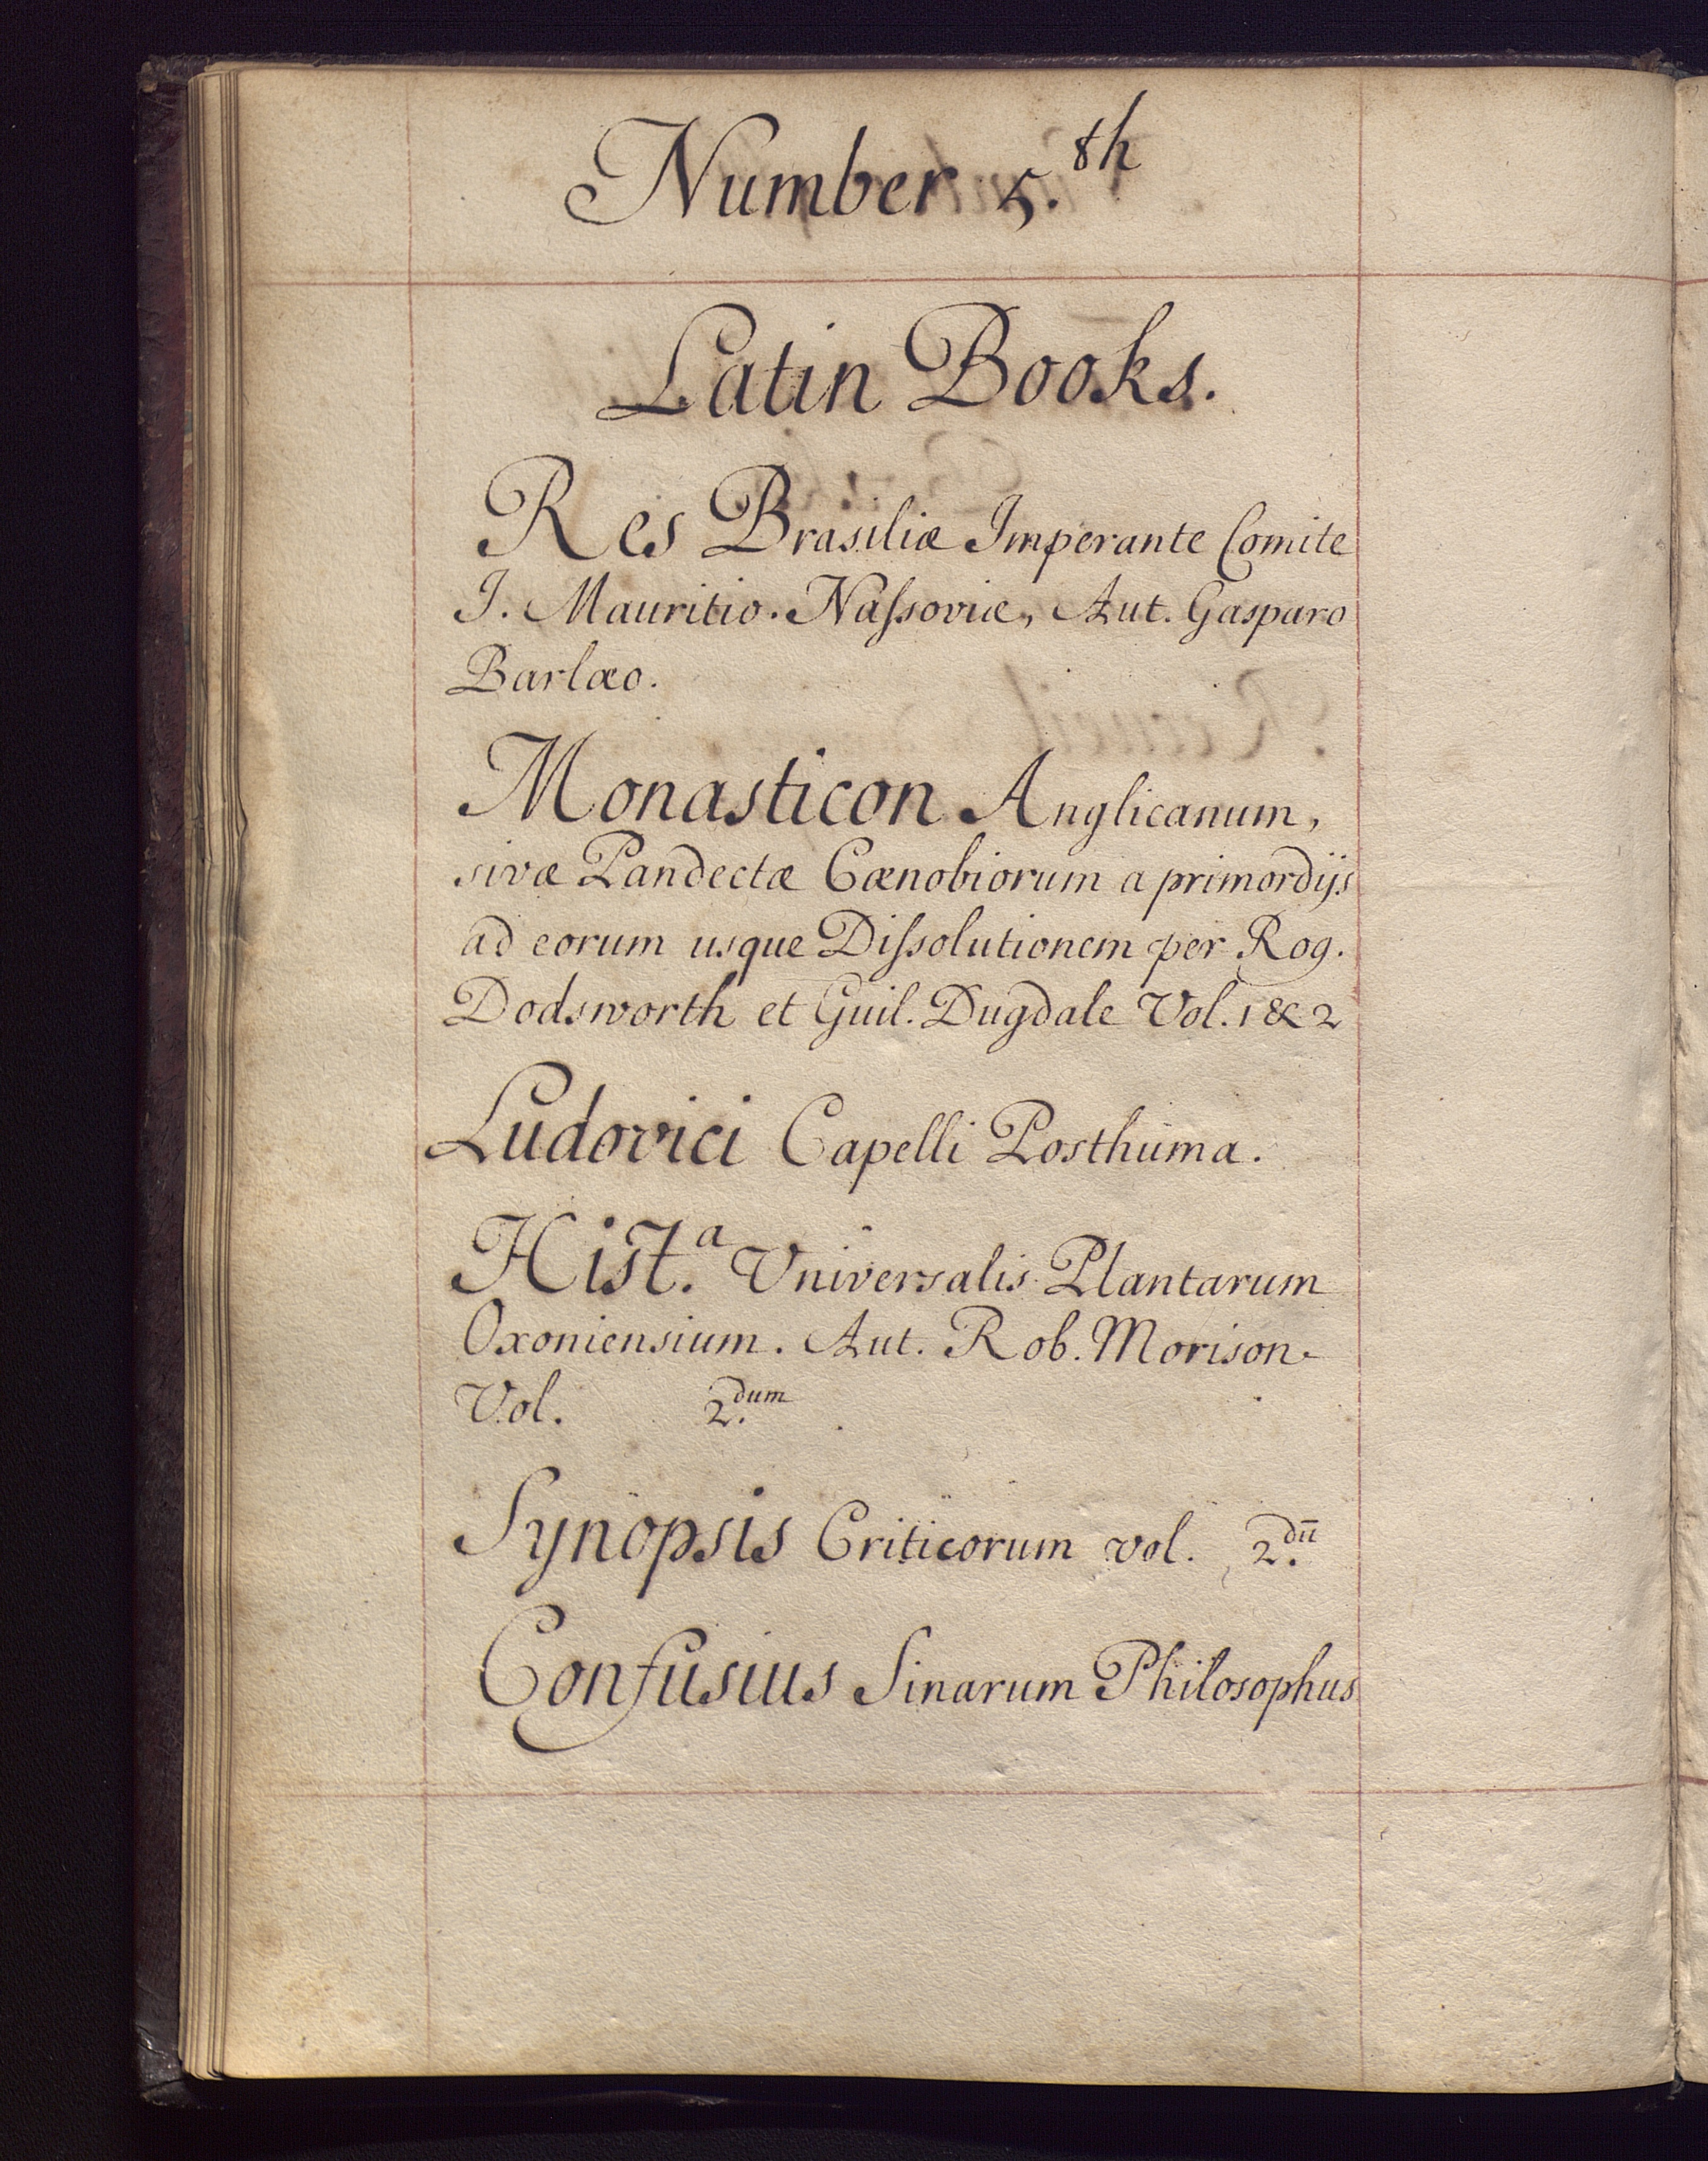 Number 5.th
Latin Books.
Res Brasiliæ Imperante Comite
J. Mauritio. Naſsoviæ, Aut. Gasparo
Barlæo.
Monasticon Anglicanum,
sivæ Pandectæ Cænobiorum a primordijs
ad eorum usque Diſsolutionem per Rog.
Dodsworth et Guil. Dugdale Vol. 1 & 2
Ludovici Capelli Posthuma.
Hist.a Universalis Plantarum
Oxoniensium. Aut. Rob. Morison.
Vol. 2.dum
Synopsis Criticorum vol. 2.dū
Confusius Sinarum Philosophus